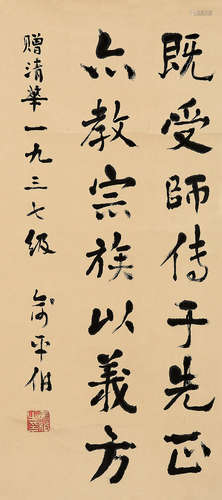 既受師傅于先正
亦教宗族以義方
贈清華一九三七級
俞平伯